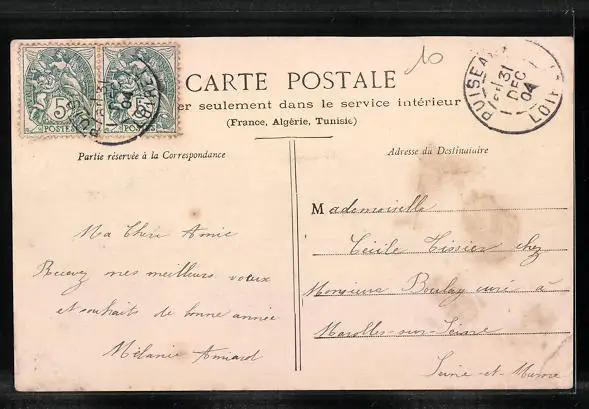 10
5 POSTES
5 POSTES
PUISEA
31
DEC
04
LOI
CARTE POSTALE
er seulement dans le service intérieur
(France, Algérie, Tunisie)
Partie réservée à la Correspondance
Ma Chère Amie
Recevez mes meilleurs voeux
et souhaits de bonne année
Mélanie
Adresse du Destinataire
Mademoiselle
Cécile Tissier chez
Monsieur Boulay curé à
Marolles-sur-Seine
Seine-et-Marne